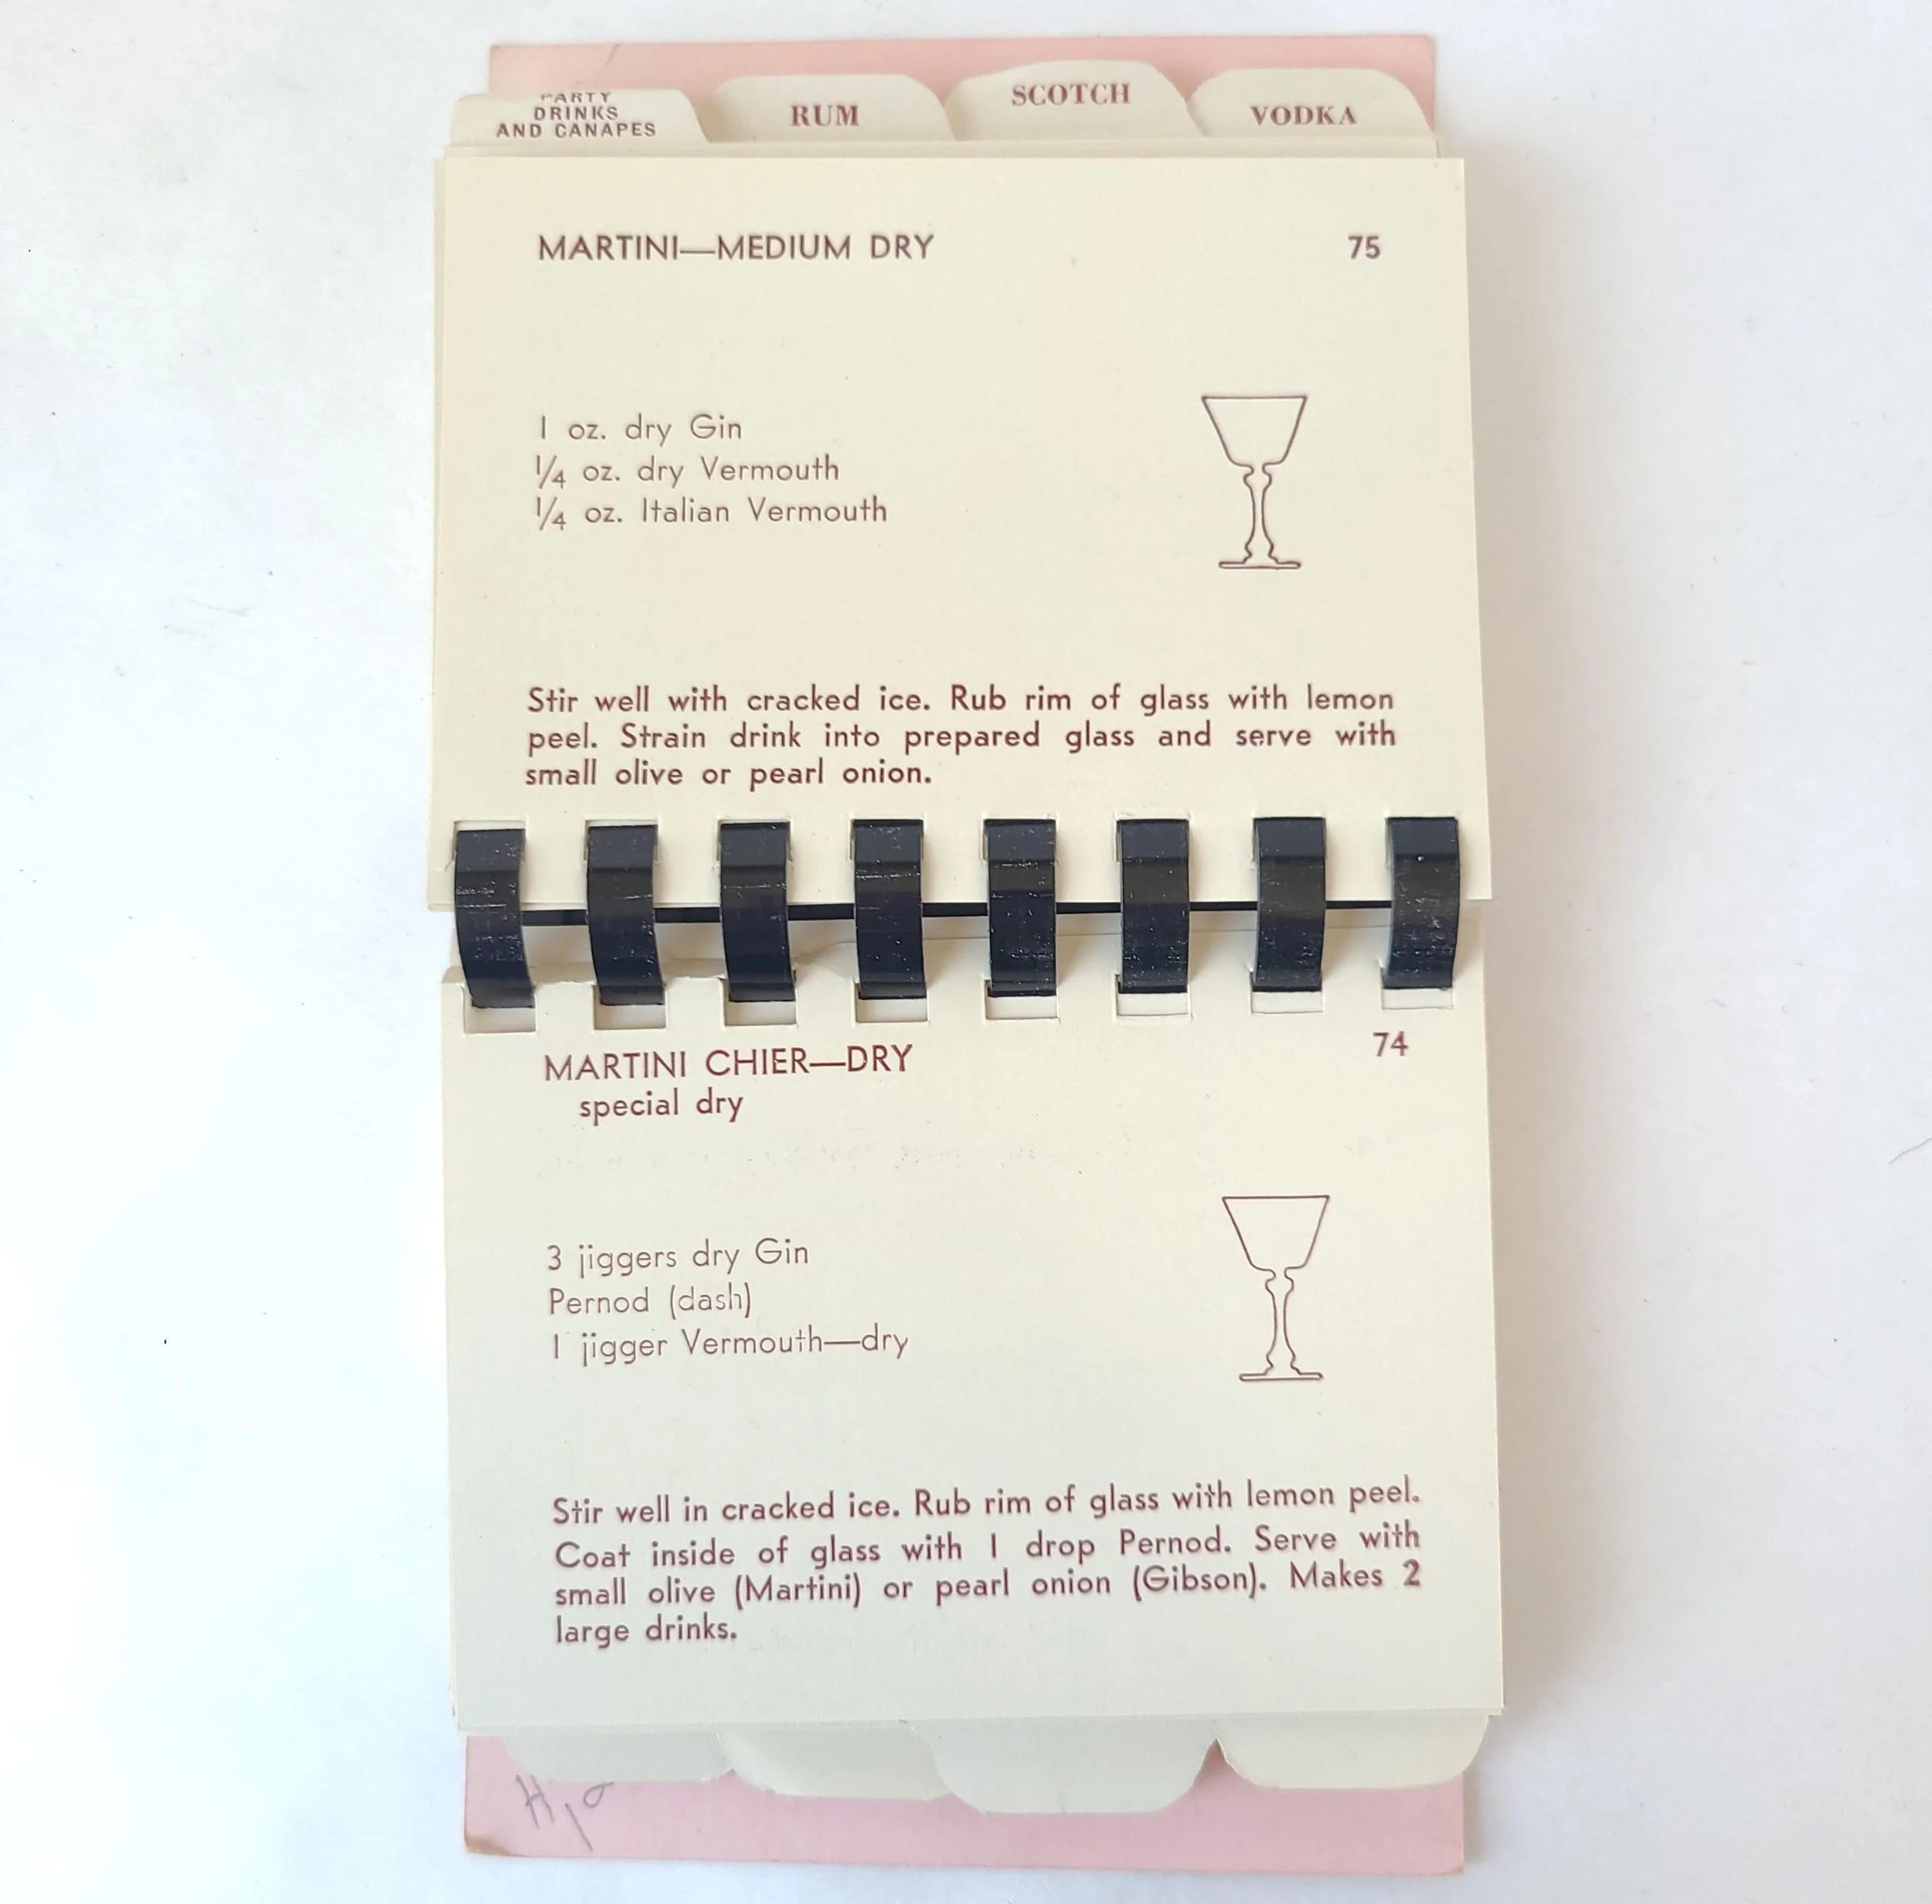 PARTY
DRINKS
AND CANAPES
RUM
SCOTCH
VODKA
MARTINI—MEDIUM DRY
75
1 oz. dry Gin
1/4 oz. dry Vermouth
1/4 oz. Italian Vermouth
Stir well with cracked ice. Rub rim of glass with lemon
peel. Strain drink into prepared glass and serve with
small olive or pearl onion.
74
MARTINI CHIER—DRY
special dry
3 jiggers dry Gin
Pernod (dash)
1 jigger Vermouth—dry
Stir well in cracked ice. Rub rim of glass with lemon peel.
Coat inside of glass with 1 drop Pernod. Serve with
small olive (Martini) or pearl onion (Gibson). Makes 2
large drinks.